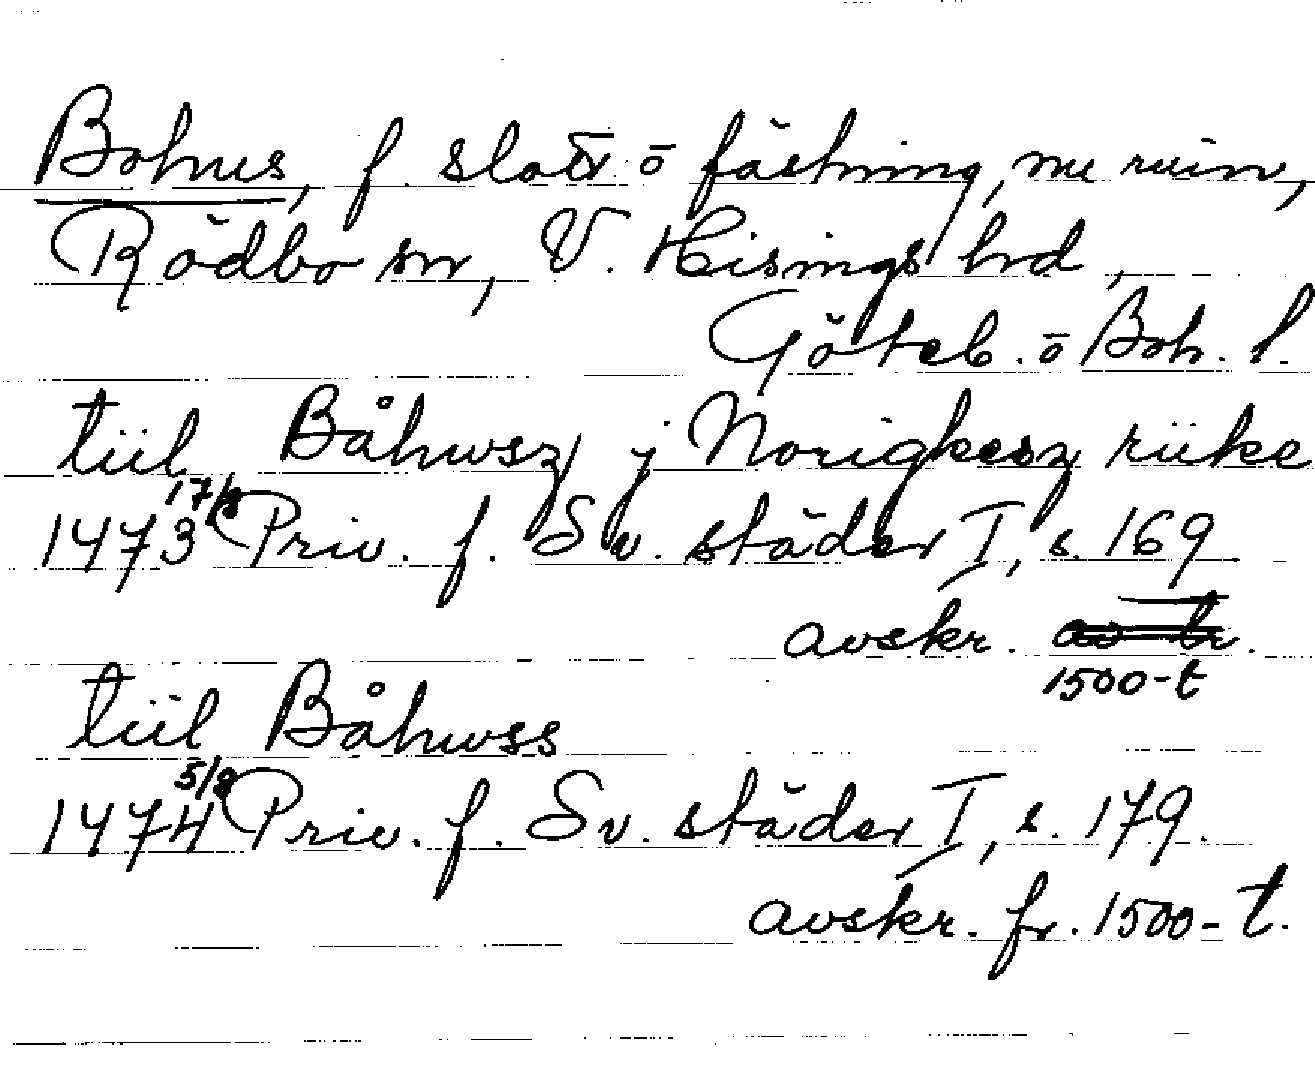 Bohus, f. slott ō fästning, nu ruin,
Rödbo sn, V. Hisings hrd,
Göteb. ō Boh. l.
tiil Båhwsz j Norigkesz riike
1473 17/8 Priv. f. Sv. städer I, s. 169
avskr.
1500-t
tiil Båhwss
1474 5/8 Priv. f. Sv. städer I, s. 179.
avskr. fr. 1500-t.